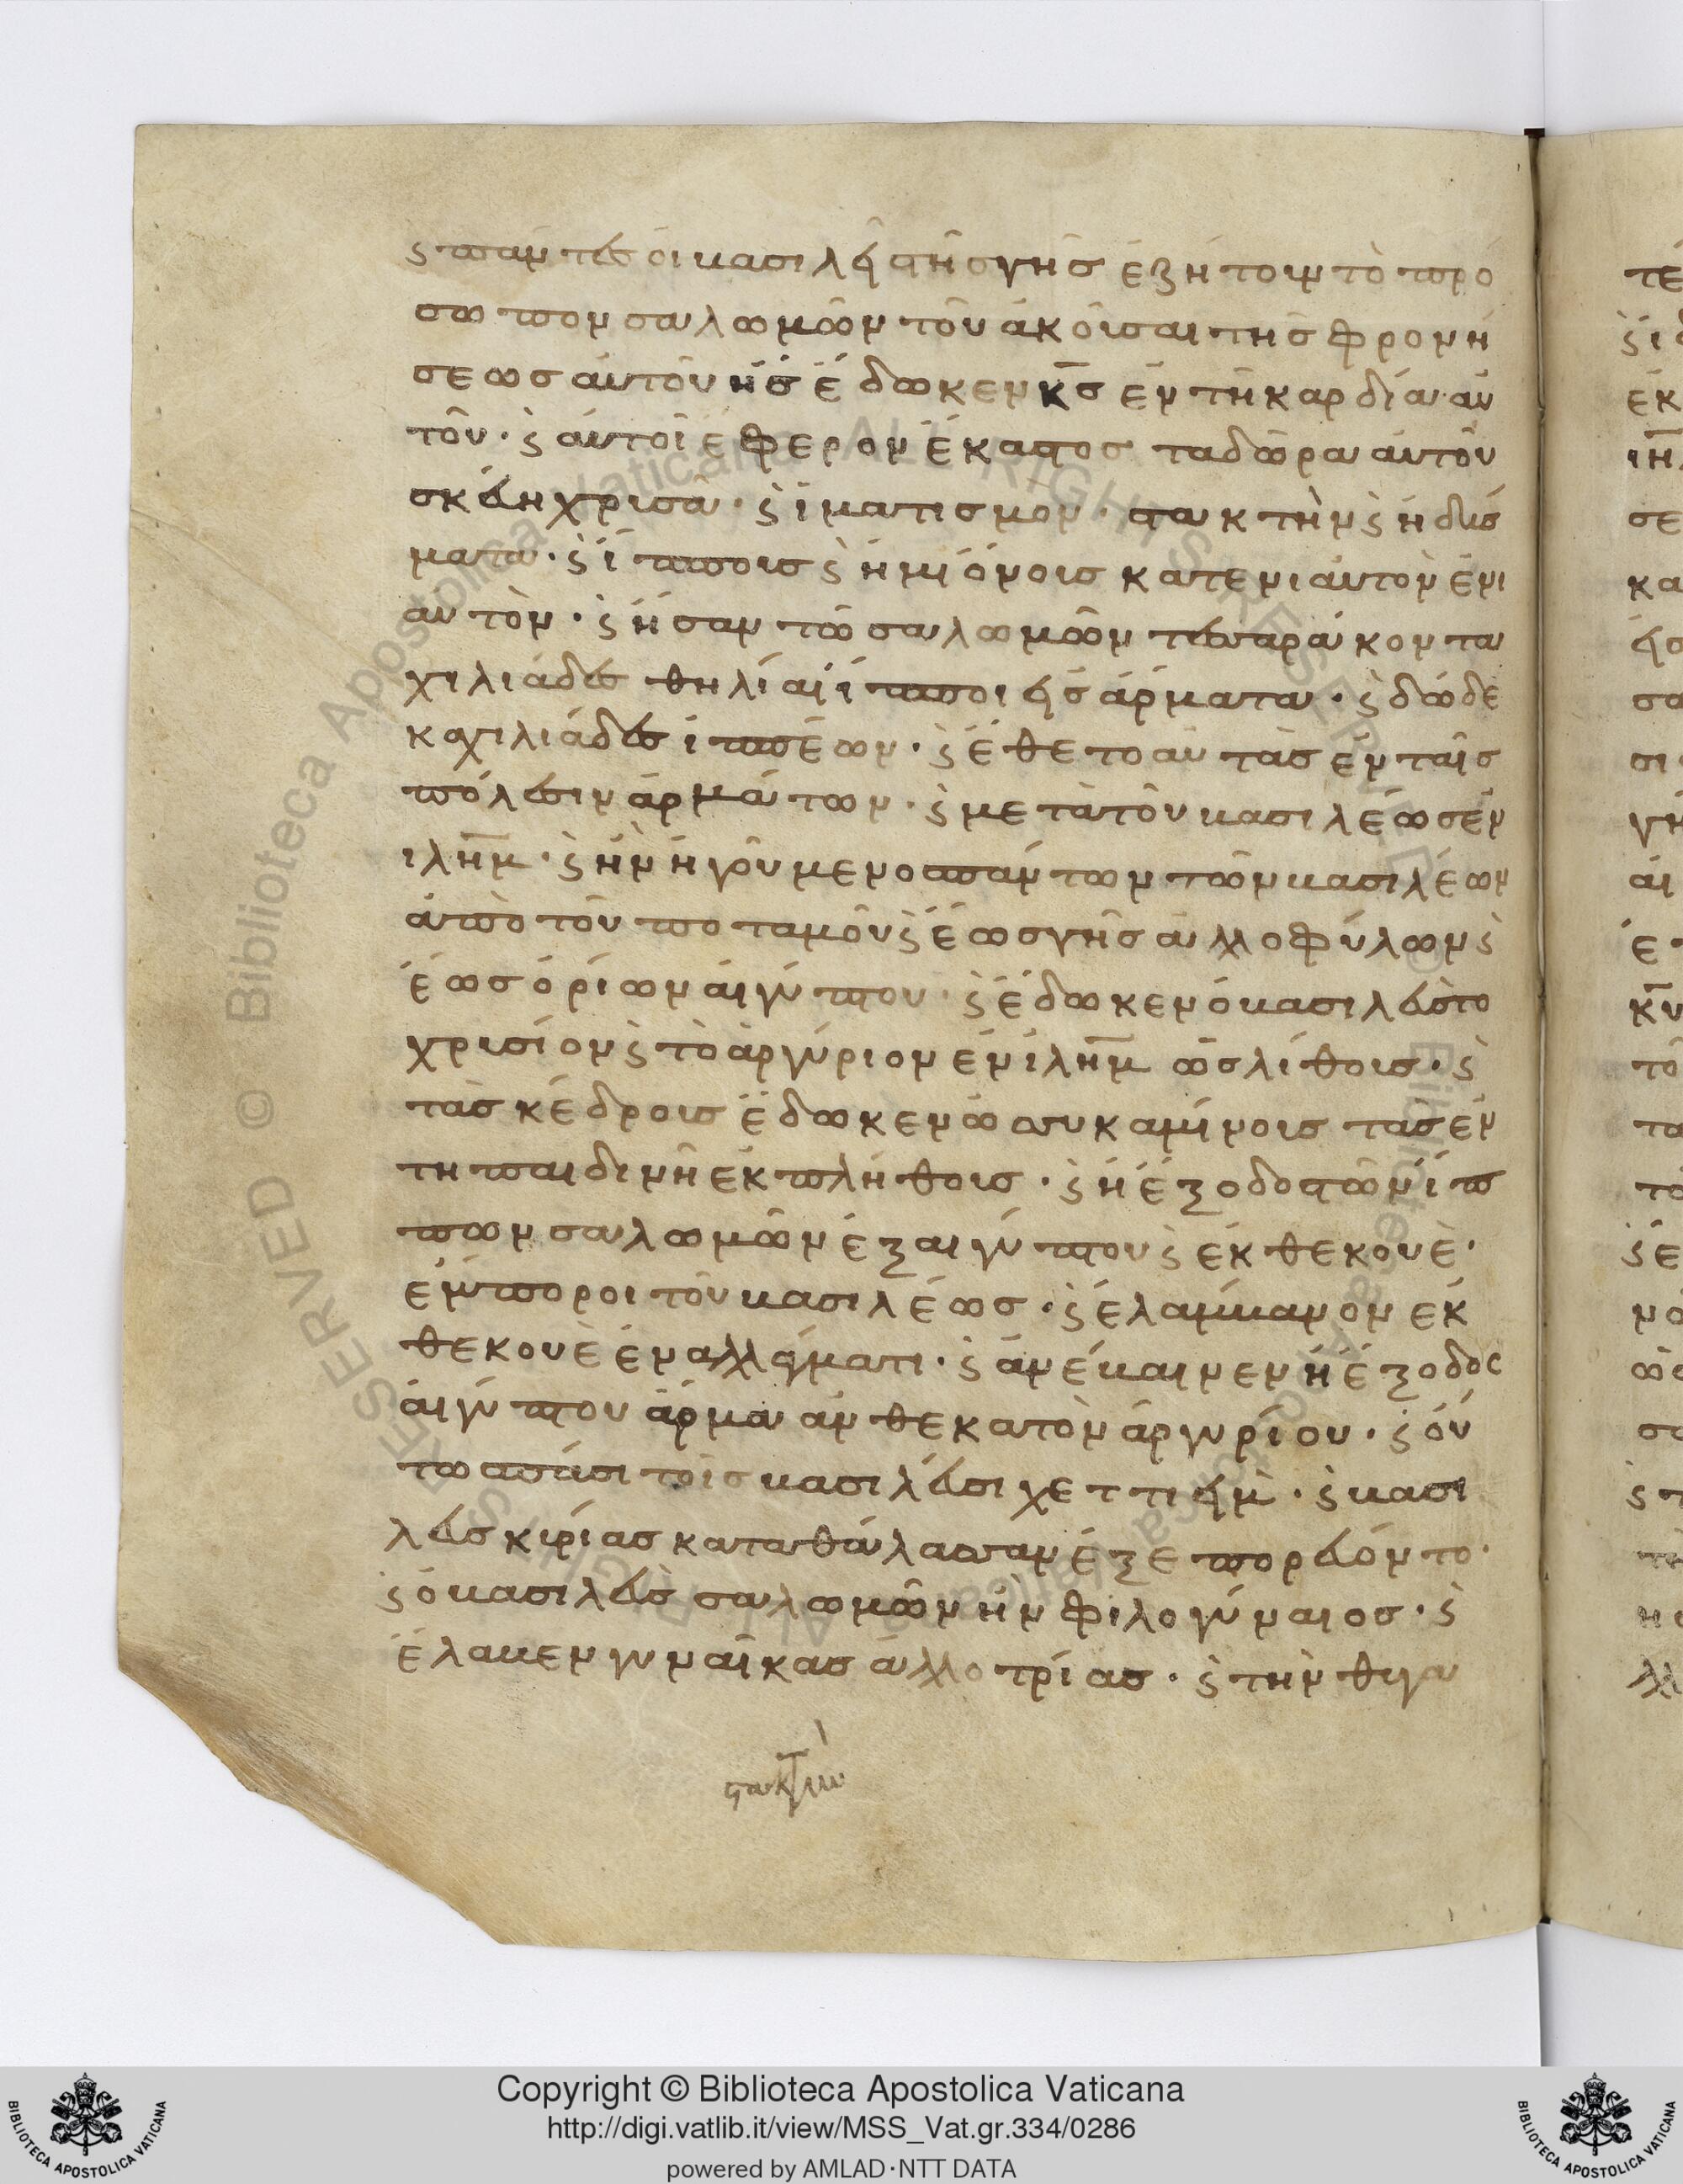 ϛ πάντες οἱ βασιλεῖς τῆς γῆς ἐζήτουν τὸ πρό
σωπον σαλωμῶν τοῦ ἀκοῦσαι τῆς φρονή
σεως αὐτοῦ ἧς ἔδωκεν κ̅ς̅ ἐν τῆ καρδία αὐ
τοῦ · ϛ αὐτοὶ ἔφερον ἕκαστος τα δῶρα αὐτοῦ
σκεύη χρυσᾶ · ϛ ἱματισμὸν · στακτὴν ϛ ἡδύσ
ματα · ϛ ἵππους ϛ ἡμιόνους κατενιαυτον ἐνι
αυτὸν · ϛ ἦσαν τῶ σαλωμῶν τεσσαράκοντα
χιλιάδες θηλίαι ἵπποι εἰς ἅρματα · ϛ δώδε
κα χιλιάδες ἱππέων · ϛ ἔθετο αὐτὰς ἐν ταῖς
πόλεσιν ἁρμάτων · ϛ μετὰ τοῦ βασιλέως ἐν
ιλη̅μ · ϛ ἦν ἡγούμενος πάντων τῶν βασιλέων
ἀπὸ τοῦ ποταμοῦ ϛ ἕως γῆς ἀλλοφύλων ϛ
ἕως ὁρίων αἰγύπτου · ϛ ἔδωκεν ὁ βασιλεὺς το
χρυσίον ϛ τὸ ἀργύριον ἐν ἰλη̅μ ὡς λίθους · ϛ
τὰς κέδρους ἔδωκεν ὡ συκαμίνους τὰς ἐν
τη παιδινῆ ἐκ πλήθους · ϛ ἡ ἔξοδος τῶν ἵπ
πων σαλωμῶν ἐξ αιγύπτου ϛ ἐκ θεκουὲ ·
ἔμποροι τοῦ βασιλέως · ϛ ἐλάμβανον ἐκ
θεκουὲ ἐν αλλάγματι · ϛ ἀνέβαινεν ἡ ἔξοδος
αἰγύπτου ἅρμα ἀνθεκατὸν ἀργυρίου · ϛ οὕ
τω πάσι τοῖς βασιλεῦσι χεττιεὶμ · ϛ βασι
λεῦς κιρίας κατα θάλασσαν ἐξεπορεύοντο ·
ϛ ὁ βασιλεὺς σαλωμῶν ἦν φιλογύναιος · ϛ
ἔλαβεν γυναῖκας ἀλλοτρίας · ϛ τὴν θυγα
στακτὴν
Copyright © Biblioteca Apostolica Vaticana
http://digi.vatlib.it/view/MSS_Vat.gr.334/0286
powered by AMLAD·NTT DATA